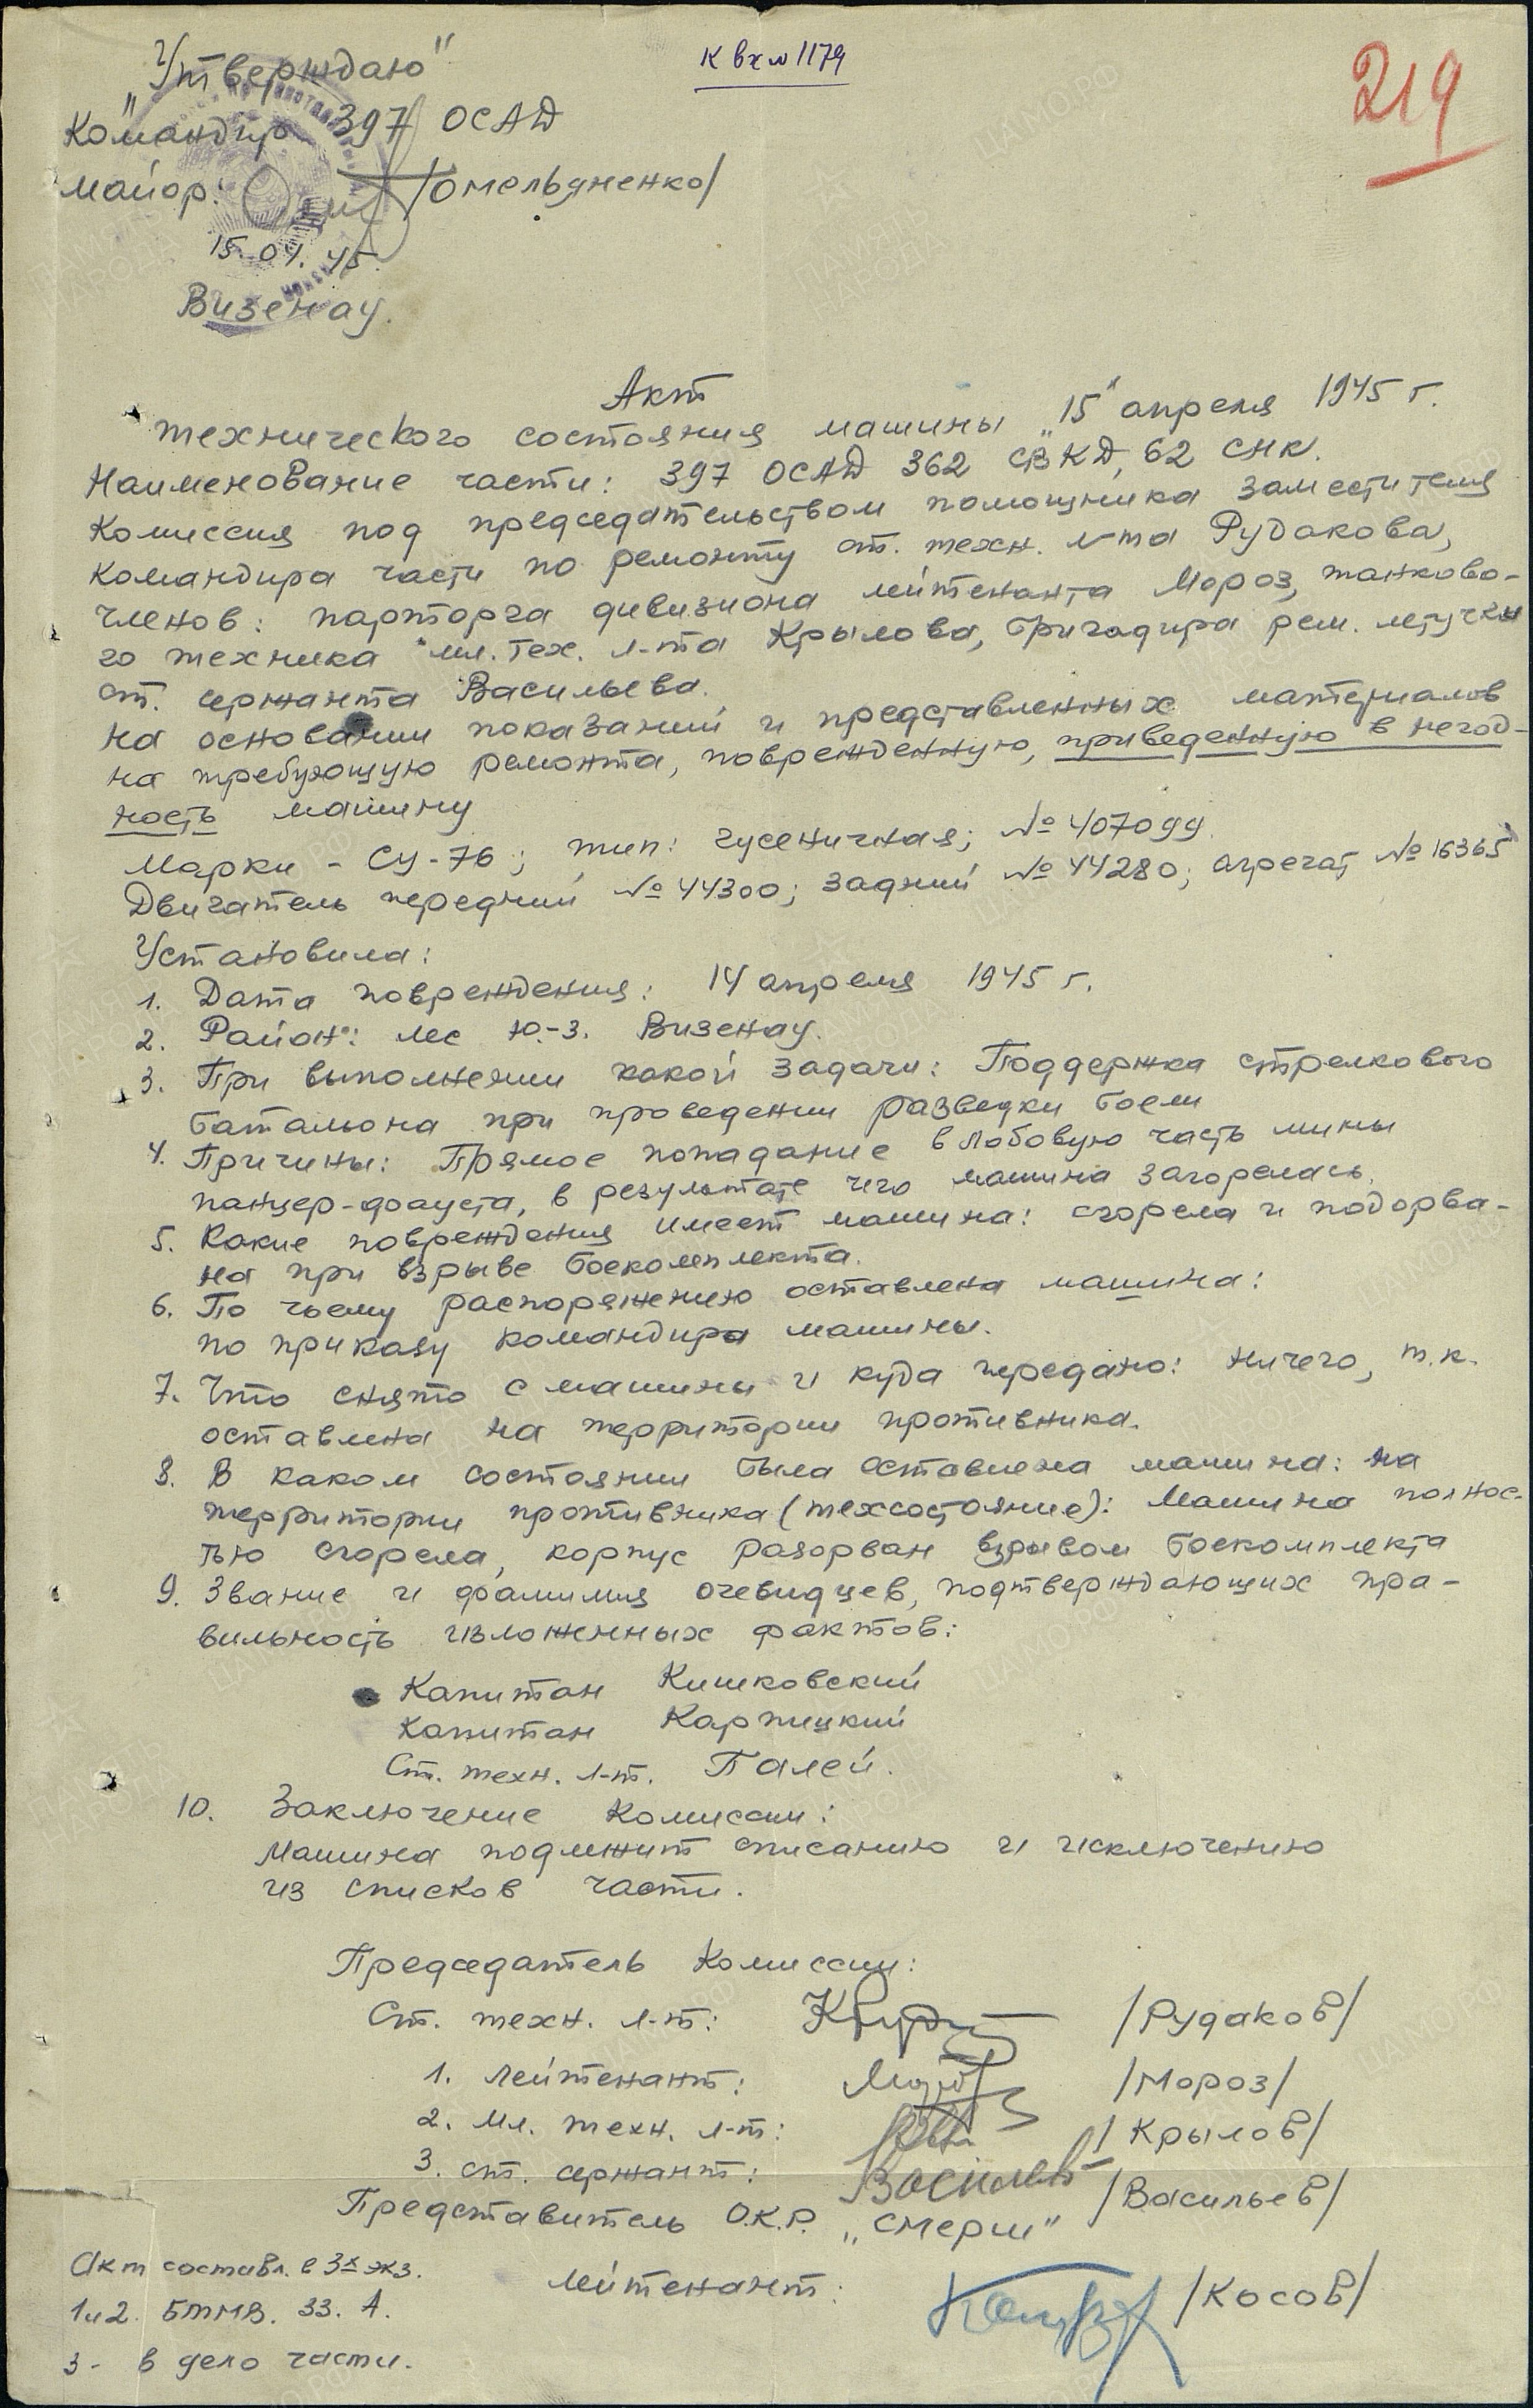 к вх № 1179
219
"Утверждаю"
Командир 397 ОСАД
майор: /Омельяненко/
15.04.45.
Визенау.
Акт
технического состояния машины "15" апреля 1945 г.
Наименование части: 397 ОСАД 362 СВКД, 62 СНК.
Комиссия под председательством помощника заместителя
командира части по ремонту ст. техн. л-та Рудакова,
членов: парторга дивизиона лейтенанта Мороз, танково-
го техника мл. тех. л-та Крылова, бригадира рем. летучки
ст. сержанта Васильева.
на основании показаний и представленных материалов
на требующую ремонта, поврежденную, приведенную в негод-
ность машину
Марки - СУ-76; тип: гусеничная; № 407099.
Двигатель передний № 44300; задний № 44280; агрегат № 16365
Установила:
1. Дата повреждения: 14 апреля 1945 г.
2. Район: лес Ю.-З. Визенау.
3. При выполнении какой задачи: Поддержка стрелкового
батальона при проведении разведки боем
4. Причины: Прямое попадание в лобовую часть мины
панцер-фауста, в результате чего машина загорелась.
5. Какие повреждения имеет машина: сгорела и подорва-
на при взрыве боекомплекта.
6. По чьему распоряжению оставлена машина:
по приказу командира машины.
7. Что снято с машины и куда передано: ничего, т.к.
оставлена на территории противника.
8. В каком состоянии была оставлена машина: на
территории противника (техсостояние): Машина полнос-
тью сгорела, корпус разорван взрывом боекомплекта
9. Звание и фамилия очевидцев, подтверждающих пра-
вильность изложенных фактов:
Капитан Кишковский
Капитан Карпицкий
Ст. техн. л-т. Палей.
10. Заключение Комиссии:
Машина подлежит списанию и исключению
из списков части.
Председатель Комиссии:
Ст. техн. л-т: /Рудаков/
1. лейтенант: /Мороз/
2. Мл. техн. л-т: /Крылов/
3. ст. сержант: Васильев /Васильев/
Представитель О.К.Р. "Смерш"
лейтенант: /Косов/
Акт составл. в 3х экз.
1 и 2. БТМВ. 33. А.
3 - в дело части.